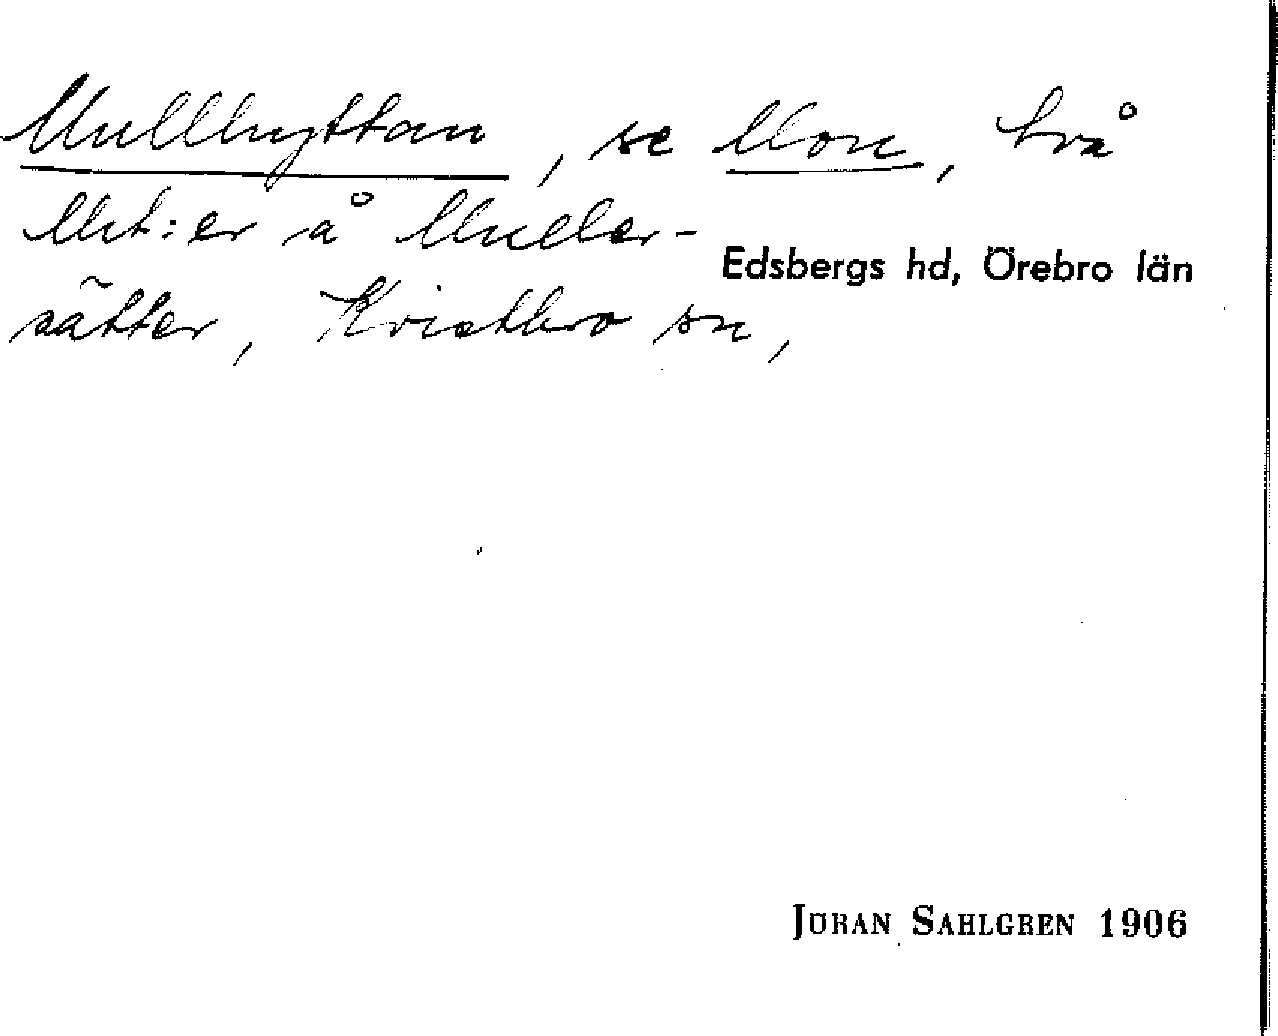 Mullhyttan, se Mon, två
Mt:er å Muller-
sätter, Kvistbro sn,
Edsbergs hd, Örebro län
JÖRAN SAHLGREN 1906